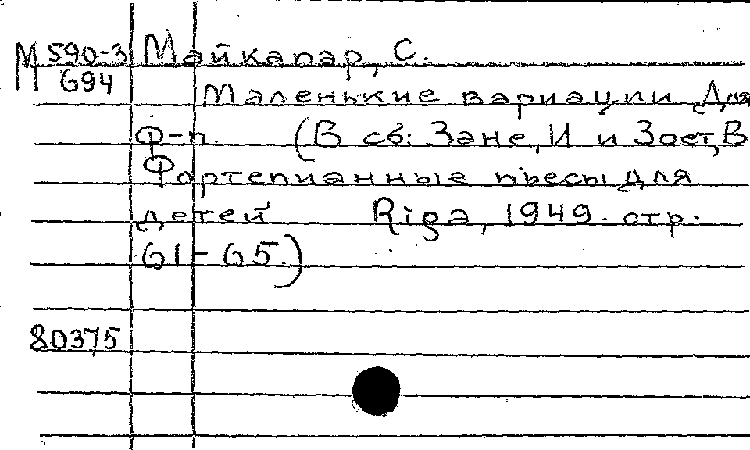 М 590-3 Майкапар, С.
694 Маленькие вариации для
ф-п. (В сб: Зане, И и Зост, В
Фортепианные пьесы для
детей Riga, 1949. стр.
61-65.)
80375